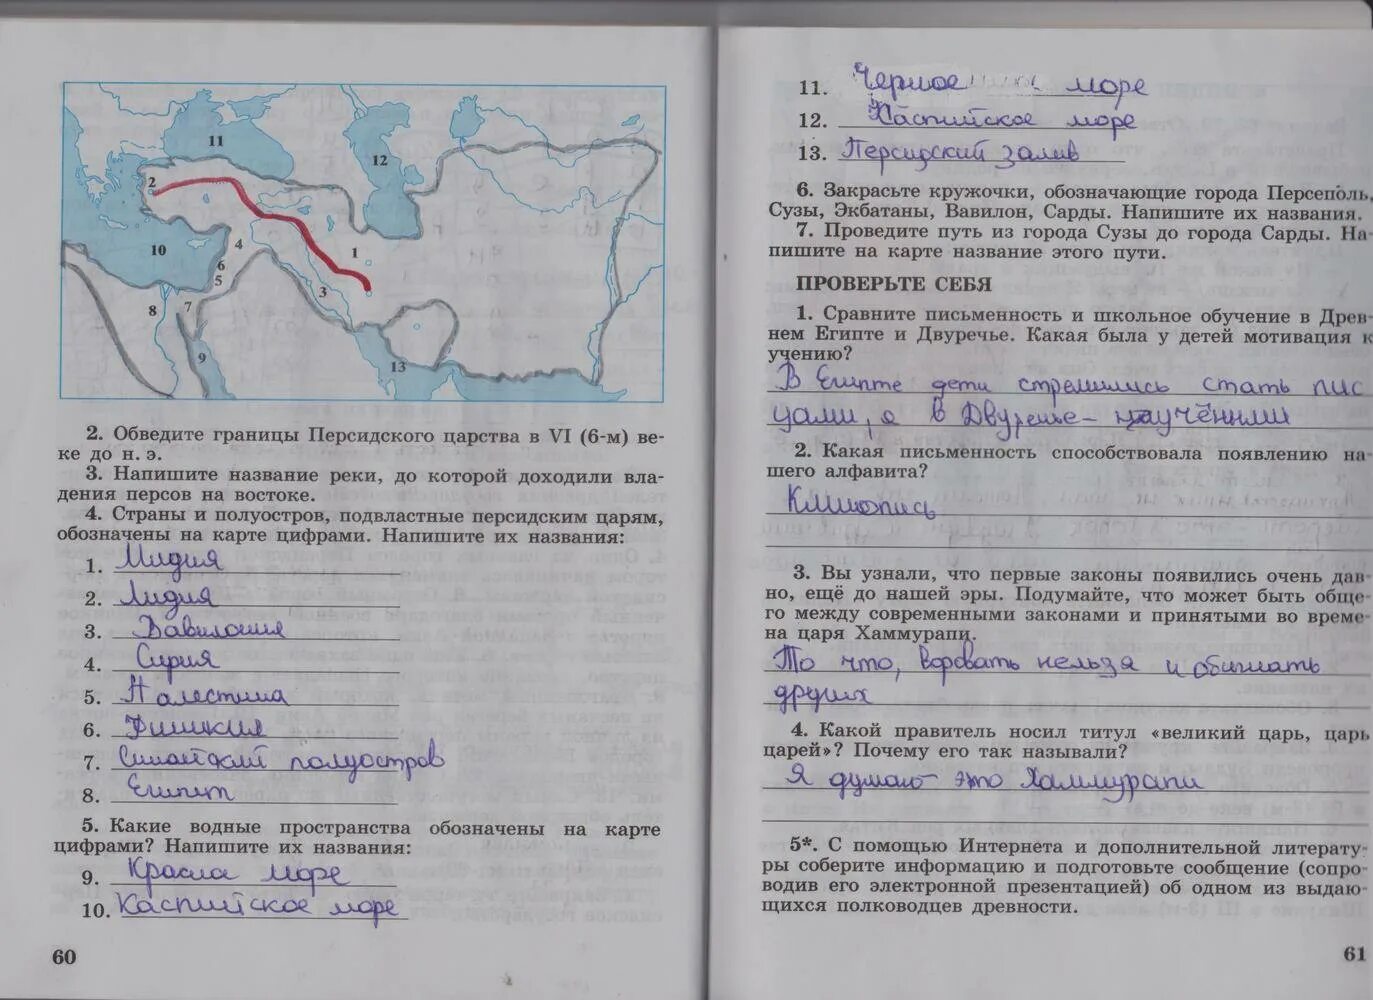 11
12
2
1
10
4
6
5
3
8
7
9
13
2. Обведите границы Персидского царства в VI (6-м) ве-
ке до н. э.
3. Напишите название реки, до которой доходили вла-
дения персов на востоке.
4. Страны и полуостров, подвластные персидским царям,
обозначены на карте цифрами. Напишите их названия:
1. Мидия
2. Лидия
3. Вавилония
4. Сирия
5. Палестина
6. Финикия
7. Синайский полуостров
8. Египет
5. Какие водные пространства обозначены на карте
цифрами? Напишите их названия:
9. Красна море
10. Каспийское море
60
11. Черное море
12. Каспийское море
13. Персидский залив
6. Закрасьте кружочки, обозначающие города Персеполь,
Сузы, Экбатаны, Вавилон, Сарды. Напишите их названия.
7. Проведите путь из города Сузы до города Сарды. На-
пишите на карте название этого пути.
ПРОВЕРЬТЕ СЕБЯ
1. Сравните письменность и школьное обучение в Древ-
нем Египте и Двуречье. Какая была у детей мотивация к
учению?
В Египте дети стремились стать пис
цами, а в Двуречье - научёнными
2. Какая письменность способствовала появлению на-
шего алфавита?
Клинопись
3. Вы узнали, что первые законы появились очень дав-
но, ещё до нашей эры. Подумайте, что может быть обще-
го между современными законами и принятыми во време-
на царя Хаммурапи.
То что, воровать нельзя и обижать
других
4. Какой правитель носил титул «великий царь, царь
царей»? Почему его так называли?
Я думаю это Хаммурапи
5*. С помощью Интернета и дополнительной литерату-
ры соберите информацию и подготовьте сообщение (сопро-
водив его электронной презентацией) об одном из выдаю-
щихся полководцев древности.
61